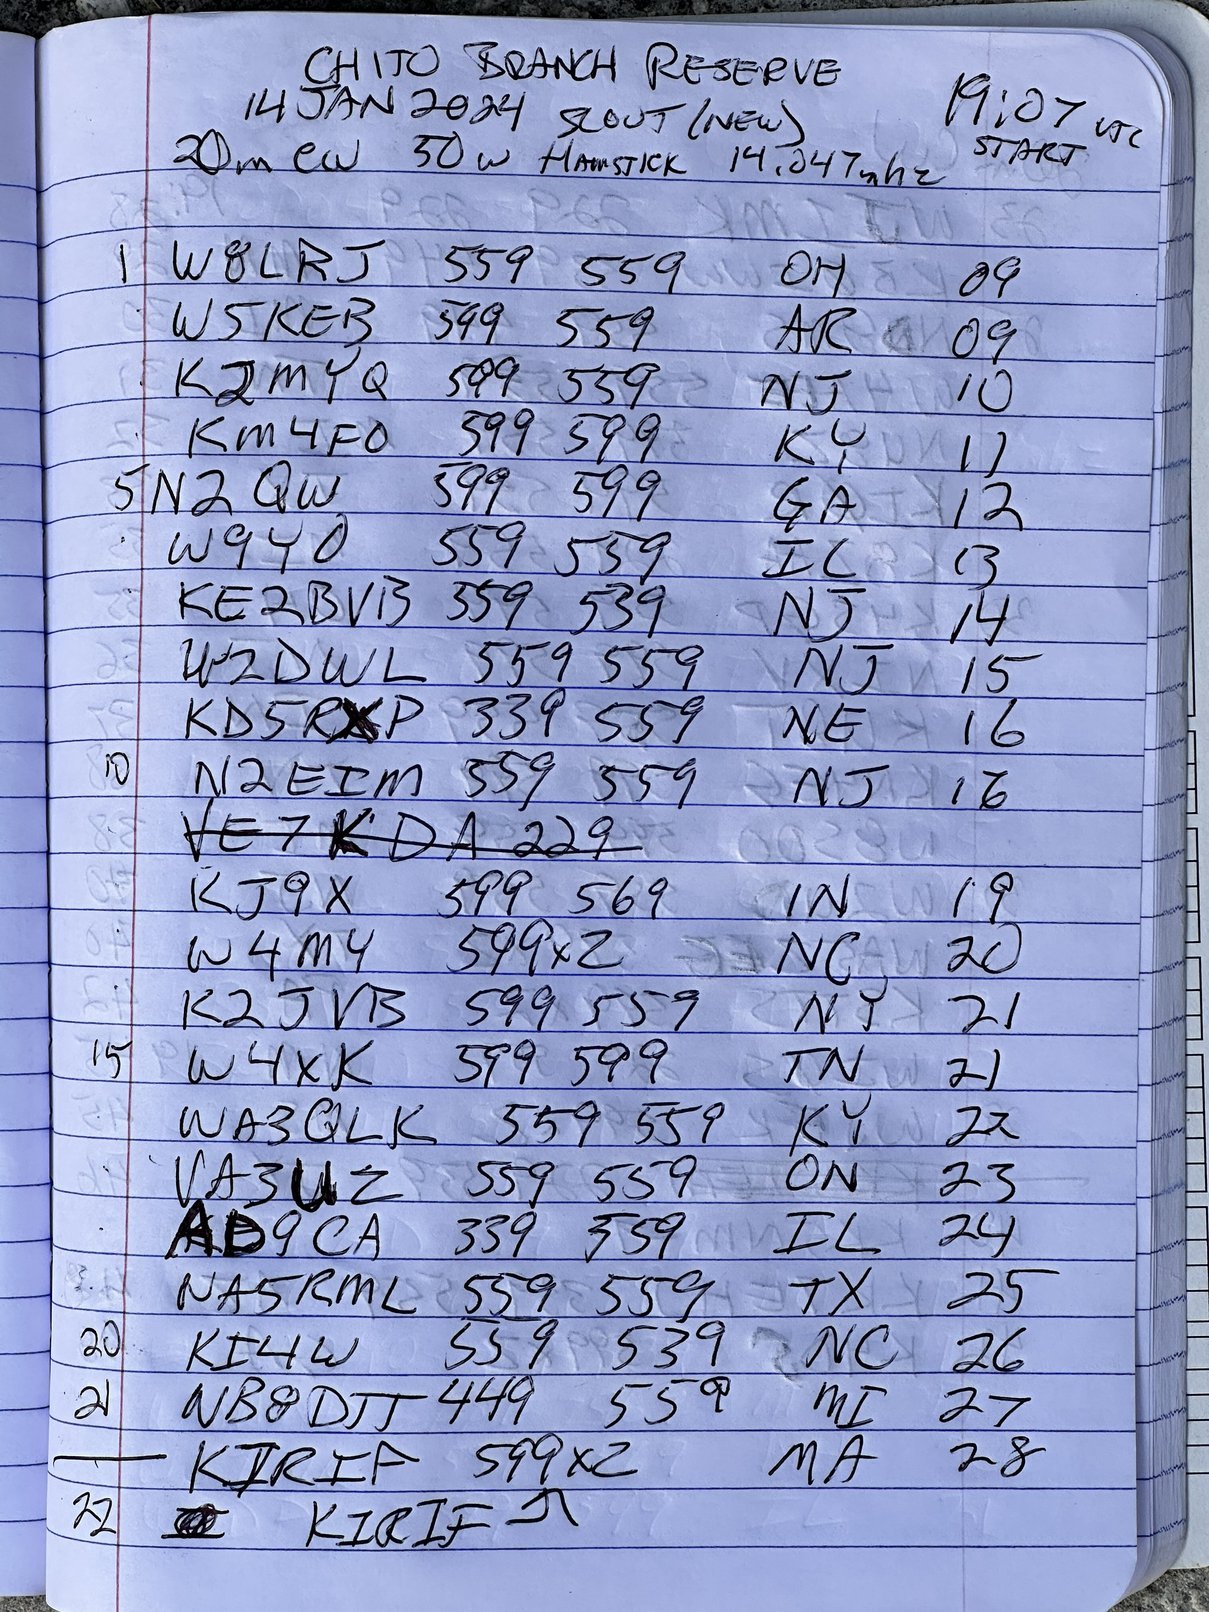 CHITO BRANCH RESERVE
14 JAN 2024 SCOUT (NEW) 19:07 UTC
20m CW 50w HAMSTICK 14.047mhz START
1 W8LRJ 559 559 OH 09
W5KEB 599 559 AR 09
K2MYQ 599 559 NJ 10
KM4FO 599 599 KY 11
5 N2QW 599 599 GA 12
W9YO 559 559 IL 13
KE2BVB 559 539 NJ 14
W2DWL 559 559 NJ 15
KD5RXP 339 559 NE 16
10 N2EIM 559 559 NJ 16
VE7KDA 229
KJ9X 599 569 IN 19
W4MY 599x2 NC 20
K2JVB 599 559 NY 21
15 W4XK 599 599 TN 21
WA3QLK 559 559 KY 22
VA3UZ 559 559 ON 23
AD9CA 339 559 IL 24
NA5RML 559 559 TX 25
20 KI4W 559 539 NC 26
21 NB8DJJ 449 559 MI 27
K1RIF 599x2 MA 28
22 K1RIF